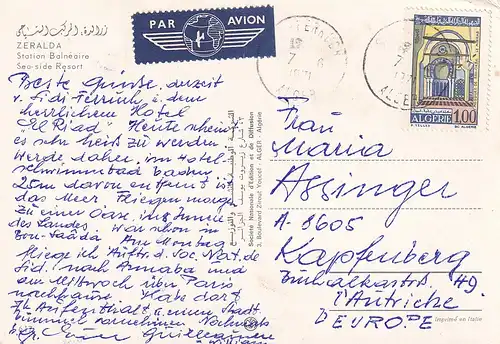 زرالدة، المركب السياحي
ZERALDA
Station Balnéaire
Sea-side Resort
PAR AVION
ALGER
ALGÉRIE
1,00
Beste Grüsse, derzeit
v. Sidi Ferruch a. dem
herrlichen Hotel
"El Riad". Heute scheint
es sehr heiß zu werden.
Werde daher im Hotel-
schwimmbad baden
25m davon entfernt ist
das Meer. Fliege morgen
zu einer Oase ins Innere
des Landes. War schon in
Bou-Saâda. Am Montag
fliege ich Auftr. d. Soc. Nat. de
Sid. nach Annaba und
am Mittwoch über Paris
nachhause. Habe dort
Aufenthalt
Société Nationale d'Edition et de Diffusion
3, Boulevard Zirout Youcef - ALGER - Algérie
Frau
Maria
Assinger
A-8605
Kapfenberg
49
l'Autriche
D'EUROPE
Imprimé en Italie